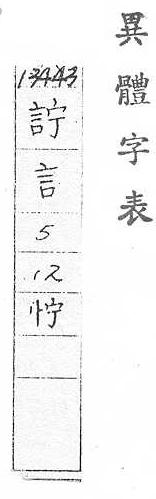 異體字表
13443
詝
言
5
12
㤖